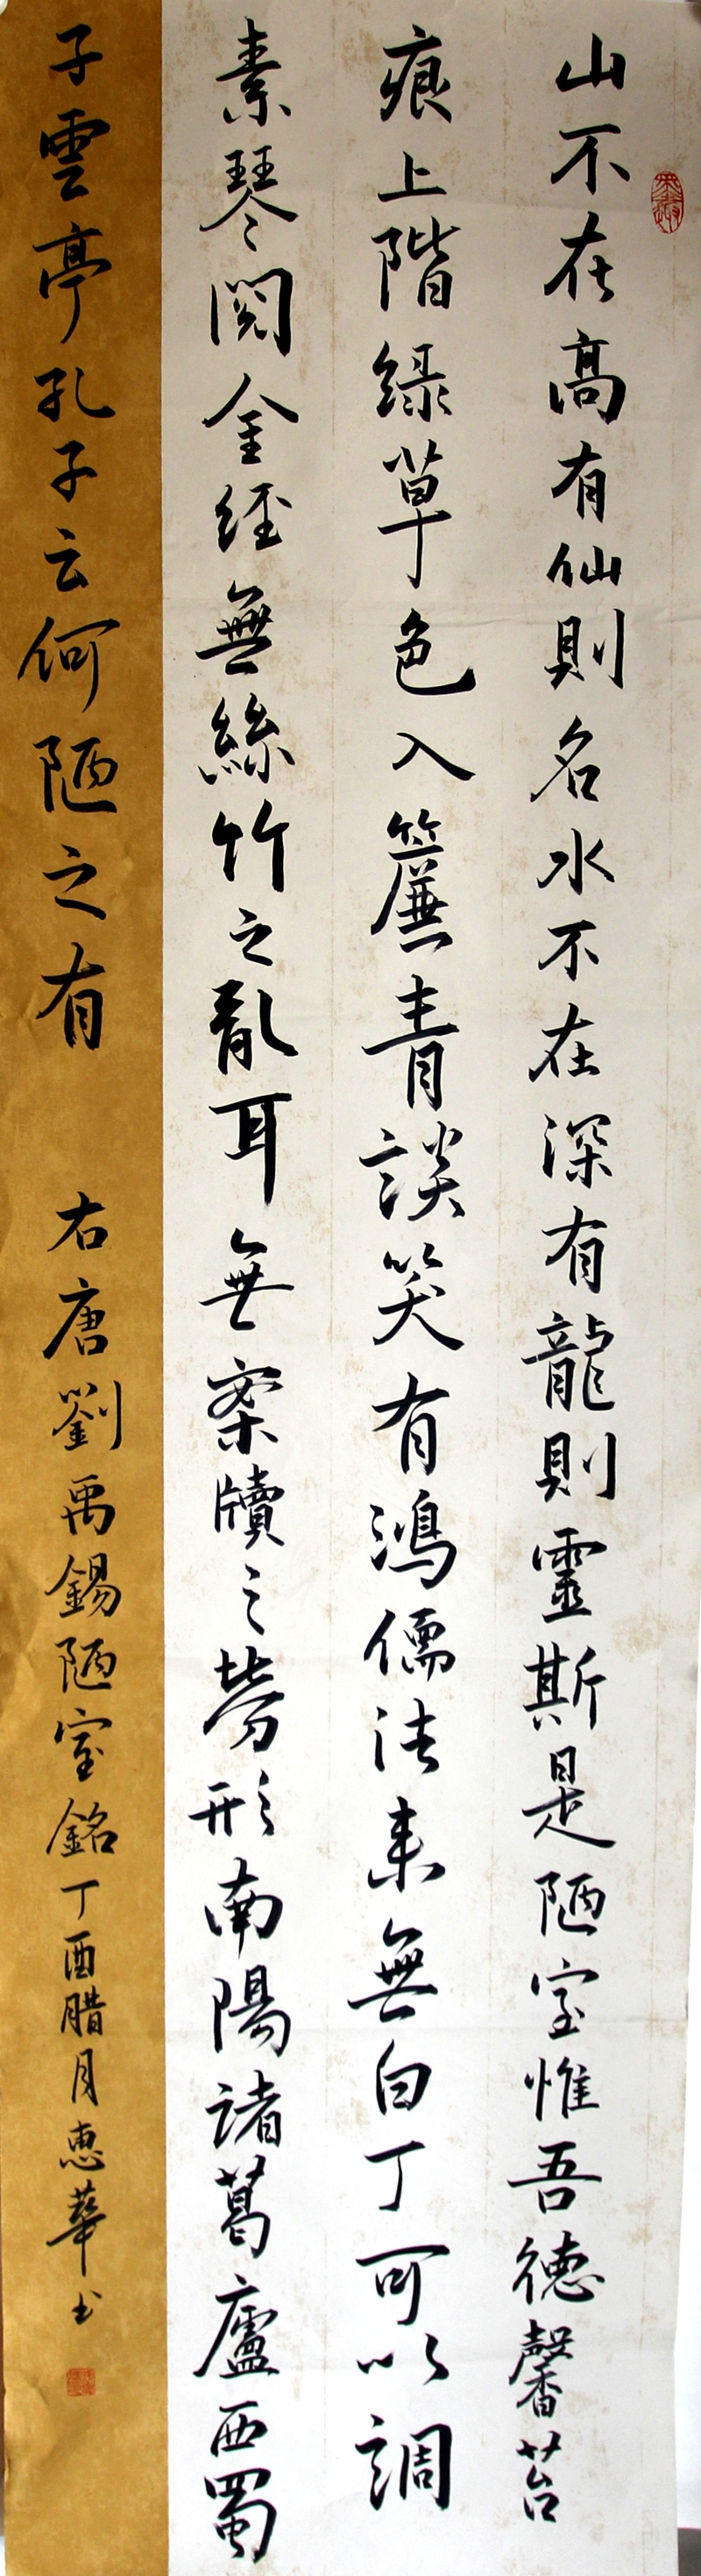 山不在高有仙則名水不在深有龍則靈斯是陋室惟吾德馨苔
痕上階綠草色入簾青談笑有鴻儒往來無白丁可以調
素琴閱金經無絲竹之亂耳無案牘之勞形南陽諸葛廬西蜀
子雲亭孔子云何陋之有 右唐劉禹錫陋室銘丁酉腊月惠華书